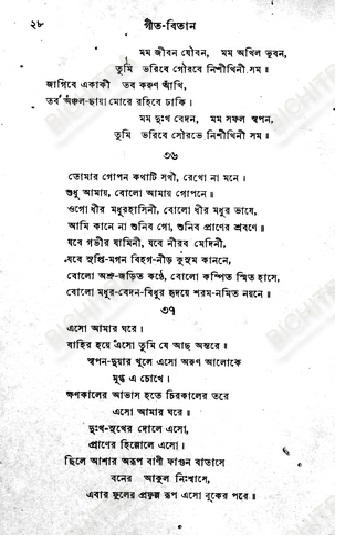 ২৮ গীত-বিতান
মম জীবন যৌবন, মম অখিল ভুবন,
তুমি ভরিবে গৌরবে নিশীথিনী সম॥
জাগিবে একাকী তব করুণ আঁখি,
তব অঞ্চল-ছায়া মোরে রহিবে ঢাকি।
মম দুঃখ বেদন, মম সফল স্বপন,
তুমি ভরিবে সৌরভে নিশীথিনী সম॥
৩৬
তোমার গোপন কথাটি সখী, রেখো না মনে।
শুধু আমায়, বোলো আমায় গোপনে।
ওগো ধীর মধুরহাসিনী, বোলো ধীর মধুর ভাষে,
আমি কানে না শুনিব গো, শুনিব প্রাণের শ্রবণে।
যবে গভীর যামিনী, যবে নীরব মেদিনী,
যবে সুপ্তি-মগন বিহগ-নীড় কুসুম কাননে,
বোলো অশ্রু-জড়িত কণ্ঠে, বোলো কম্পিত স্মিত হাসে,
বোলো মধুর-বেদন-বিধুর হৃদয়ে শরম-নমিত নয়নে॥
৩৭
এসো আমার ঘরে।
বাহির হয়ে এসো তুমি যে আছ অন্তরে।
স্বপন-দুয়ার খুলে এসো অরুণ আলোকে
মুগ্ধ এ চোখে।
ক্ষণকালের আভাস হতে চিরকালের তরে
এসো আমার ঘরে॥
দুঃখ-সুখের দোলে এসো,
প্রাণের হিল্লোলে এসো।
ছিলে আশার অরূপ বাণী ফাগুন বাতাসে
বনের আকুল নিঃশ্বাসে,
এবার ফুলের প্রফুল্ল রূপ এসো বুকের পরে॥
BICHITRA